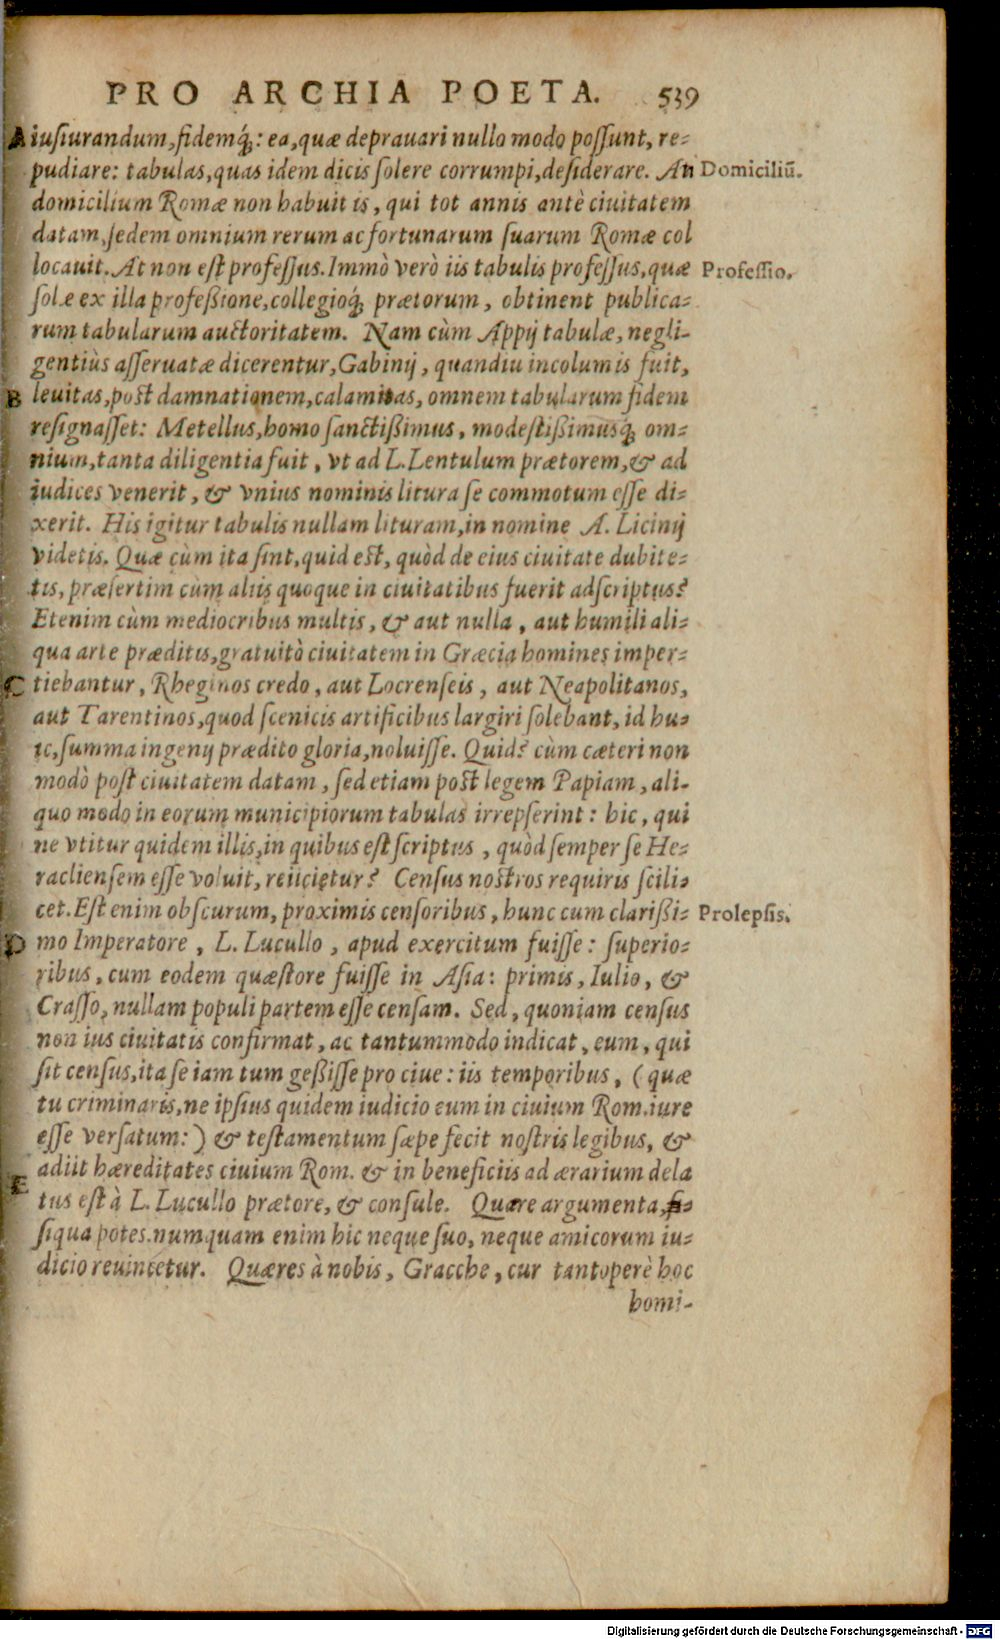 PRO ARCHIA POETA. 539
A iusiurandum, fidemq́;: ea, quæ deprauari nullo modo possunt, re-
pudiare: tabulas, quas idem dicis solere corrumpi, desiderare. An Domiciliũ.
domicilium Romæ non habuit is, qui tot annis antè ciuitatem
datam, sedem omnium rerum ac fortunarum suarum Romæ col
locauit. At non est professus. Immò verò iis tabulis professus, quæ Professio.
solæ ex illa professione, collegioq́; prætorum, obtinent publica-
rum tabularum auctoritatem. Nam cùm Appij tabulæ, negli-
gentiùs asseruatæ dicerentur, Gabinij, quandiu incolumis fuit,
B leuitas, post damnationem, calamitas, omnem tabularum fidem
resignasset: Metellus, homo sanctissimus, modestissimusq́; om-
nium, tanta diligentia fuit, vt ad L. Lentulum prætorem, & ad
iudices venerit, & vnius nominis litura se commotum esse di-
xerit. His igitur tabulis nullam lituram, in nomine A. Licinij
videtis. Quæ cùm ita sint, quid est, quòd de eius ciuitate dubite-
tis, præsertim cùm aliis quoque in ciuitatibus fuerit adscriptus?
Etenim cùm mediocribus multis, & aut nulla, aut humili ali-
qua arte præditis, gratuitò ciuitatem in Græcia homines imper-
C tiebantur, Rheginos credo, aut Locrenseis, aut Neapolitanos,
aut Tarentinos, quod scenicis artificibus largiri solebant, id hu-
ic, summa ingenij prædito gloria, noluisse. Quid? cùm cæteri non
modò post ciuitatem datam, sed etiam post legem Papiam, ali-
quo modo in eorum municipiorum tabulas irrepserint: hic, qui
ne vtitur quidem illis, in quibus est scriptus, quòd semper se He-
racliensem esse voluit, reiicietur? Census nostros requiris scili-
cet. Est enim obscurum, proximis censoribus, hunc cum clarissi- Prolepsis.
D mo Imperatore, L. Lucullo, apud exercitum fuisse: superio-
ribus, cum eodem quæstore fuisse in Asia: primis, Iulio, &
Crasso, nullam populi partem esse censam. Sed, quoniam census
non ius ciuitatis confirmat, ac tantummodo indicat, eum, qui
sit census, ita se iam tum gessisse pro ciue: iis temporibus, (quæ
tu criminaris, ne ipsius quidem iudicio eum in ciuium Rom. iure
esse versatum:) & testamentum sæpe fecit nostris legibus, &
adiit hæreditates ciuium Rom. & in beneficiis ad ærarium dela
E tus est à L. Lucullo prætore, & consule. Quære argumenta,
siqua potes. numquam enim hic neque suo, neque amicorum iu-
dicio reuincetur. Quæres à nobis, Gracche, cur tantoperè hoc
homi-
Digitalisierung gefördert durch die Deutsche Forschungsgemeinschaft - DFG